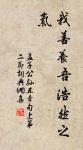 我善養吾浩然之
氣
孟子公孫丑章句上第
二節詞典網集